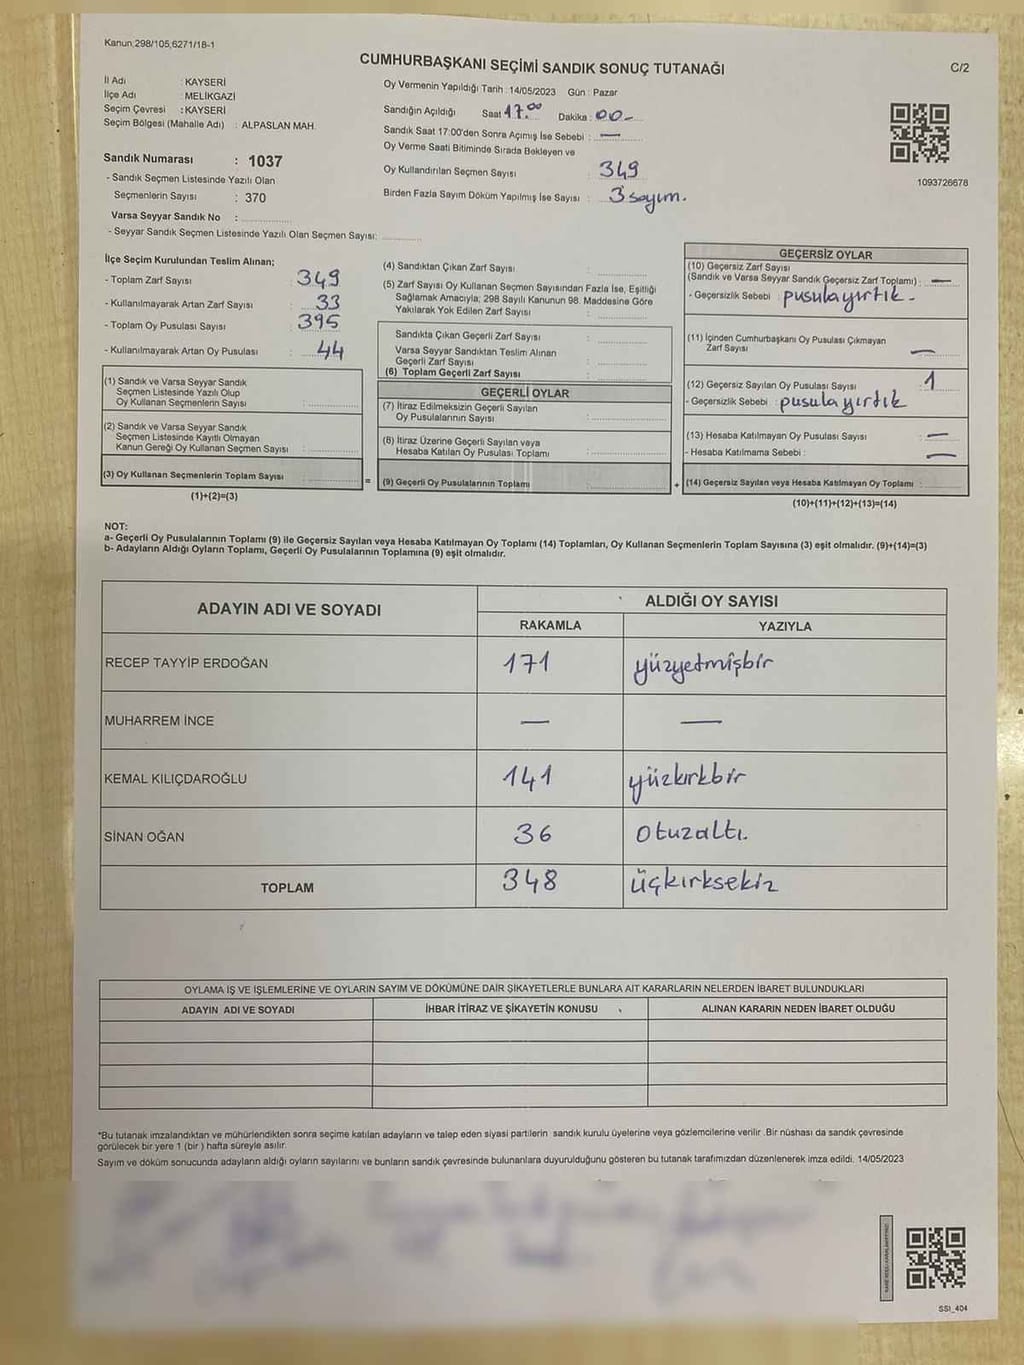 Kanun,298/105,6271/18-1
CUMHURBAŞKANI SEÇİMİ SANDIK SONUÇ TUTANAĞI
C/2
İl Adı : KAYSERİ
İlçe Adı : MELİKGAZİ
Seçim Çevresi : KAYSERİ
Seçim Bölgesi (Mahalle Adı) : ALPASLAN MAH.
Sandık Numarası : 1037
- Sandık Seçmen Listesinde Yazılı Olan
Seçmenlerin Sayısı : 370
Varsa Seyyar Sandık No :
- Seyyar Sandık Seçmen Listesinde Yazılı Olan Seçmen Sayısı:
Oy Vermenin Yapıldığı Tarih : 14/05/2023 Gün : Pazar
Sandığın Açıldığı Saat 17.00 Dakika : 00-
Sandık Saat 17:00'den Sonra Açımış İse Sebebi : —
Oy Verme Saati Bitiminde Sırada Bekleyen ve
Oy Kullandırılan Seçmen Sayısı : 349
Birden Fazla Sayım Döküm Yapılmış İse Sayısı : 3 sayım.
1093726678
İlçe Seçim Kurulundan Teslim Alınan;
- Toplam Zarf Sayısı : 349
- Kullanılmayarak Artan Zarf Sayısı : 33
- Toplam Oy Pusulası Sayısı : 395
- Kullanılmayarak Artan Oy Pusulası : 44
(1) Sandık ve Varsa Seyyar Sandık
Seçmen Listesinde Yazılı Olup
Oy Kullanan Seçmenlerin Sayısı :
(2) Sandık ve Varsa Seyyar Sandık
Seçmen Listesinde Kayıtlı Olmayan
Kanun Gereği Oy Kullanan Seçmen Sayısı :
(3) Oy Kullanan Seçmenlerin Toplam Sayısı :
(1)+(2)=(3)
(4) Sandıktan Çıkan Zarf Sayısı :
(5) Zarf Sayısı Oy Kullanan Seçmen Sayısından Fazla İse, Eşitliği
Sağlamak Amacıyla; 298 Sayılı Kanunun 98. Maddesine Göre
Yakılarak Yok Edilen Zarf Sayısı :
Sandıkta Çıkan Geçerli Zarf Sayısı :
Varsa Seyyar Sandıktan Teslim Alınan
Geçerli Zarf Sayısı :
(6) Toplam Geçerli Zarf Sayısı :
GEÇERLİ OYLAR
(7) İtiraz Edilmeksizin Geçerli Sayılan
Oy Pusulalarının Sayısı :
(8) İtiraz Üzerine Geçerli Sayılan veya
Hesaba Katılan Oy Pusulası Toplamı :
= (9) Geçerli Oy Pusulalarının Toplamı :
GEÇERSİZ OYLAR
(10) Geçersiz Zarf Sayısı
(Sandık ve Varsa Seyyar Sandık Geçersiz Zarf Toplamı) : —
- Geçersizlik Sebebi : pusula yırtık -
(11) İçinden Cumhurbaşkanı Oy Pusulası Çıkmayan
Zarf Sayısı : —
(12) Geçersiz Sayılan Oy Pusulası Sayısı : 1
- Geçersizlik Sebebi : pusula yırtık
(13) Hesaba Katılmayan Oy Pusulası Sayısı : —
- Hesaba Katılmama Sebebi : —
+ (14) Geçersiz Sayılan veya Hesaba Katılmayan Oy Toplamı :
(10)+(11)+(12)+(13)=(14)
NOT:
a- Geçerli Oy Pusulalarının Toplamı (9) ile Geçersiz Sayılan veya Hesaba Katılmayan Oy Toplamı (14) Toplamları, Oy Kullanan Seçmenlerin Toplam Sayısına (3) eşit olmalıdır. (9)+(14)=(3)
b- Adayların Aldığı Oyların Toplamı, Geçerli Oy Pusulalarının Toplamına (9) eşit olmalıdır.
ADAYIN ADI VE SOYADI
ALDIĞI OY SAYISI
RAKAMLA YAZIYLA
RECEP TAYYİP ERDOĞAN 171 yüzyetmişbir
MUHARREM İNCE — —
KEMAL KILIÇDAROĞLU 141 yüzkırkbir
SİNAN OĞAN 36 otuzaltı.
TOPLAM 348 üçkırksekiz
OYLAMA İŞ VE İŞLEMLERİNE VE OYLARIN SAYIM VE DÖKÜMÜNE DAİR ŞİKAYETLERLE BUNLARA AİT KARARLARIN NELERDEN İBARET BULUNDUKLARI
ADAYIN ADI VE SOYADI İHBAR İTİRAZ VE ŞİKAYETİN KONUSU ALINAN KARARIN NEDEN İBARET OLDUĞU
*Bu tutanak imzalandıktan ve mühürlendikten sonra seçime katılan adayların ve talep eden siyasi partilerin sandık kurulu üyelerine veya gözlemcilerine verilir .Bir nüshası da sandık çevresinde
görülecek bir yere 1 (bir ) hafta süreyle asılır.
Sayım ve döküm sonucunda adayların aldığı oyların sayılarını ve bunların sandık çevresinde bulunanlara duyurulduğunu gösteren bu tutanak tarafımızdan düzenlenerek imza edildi. 14/05/2023
SSI_404